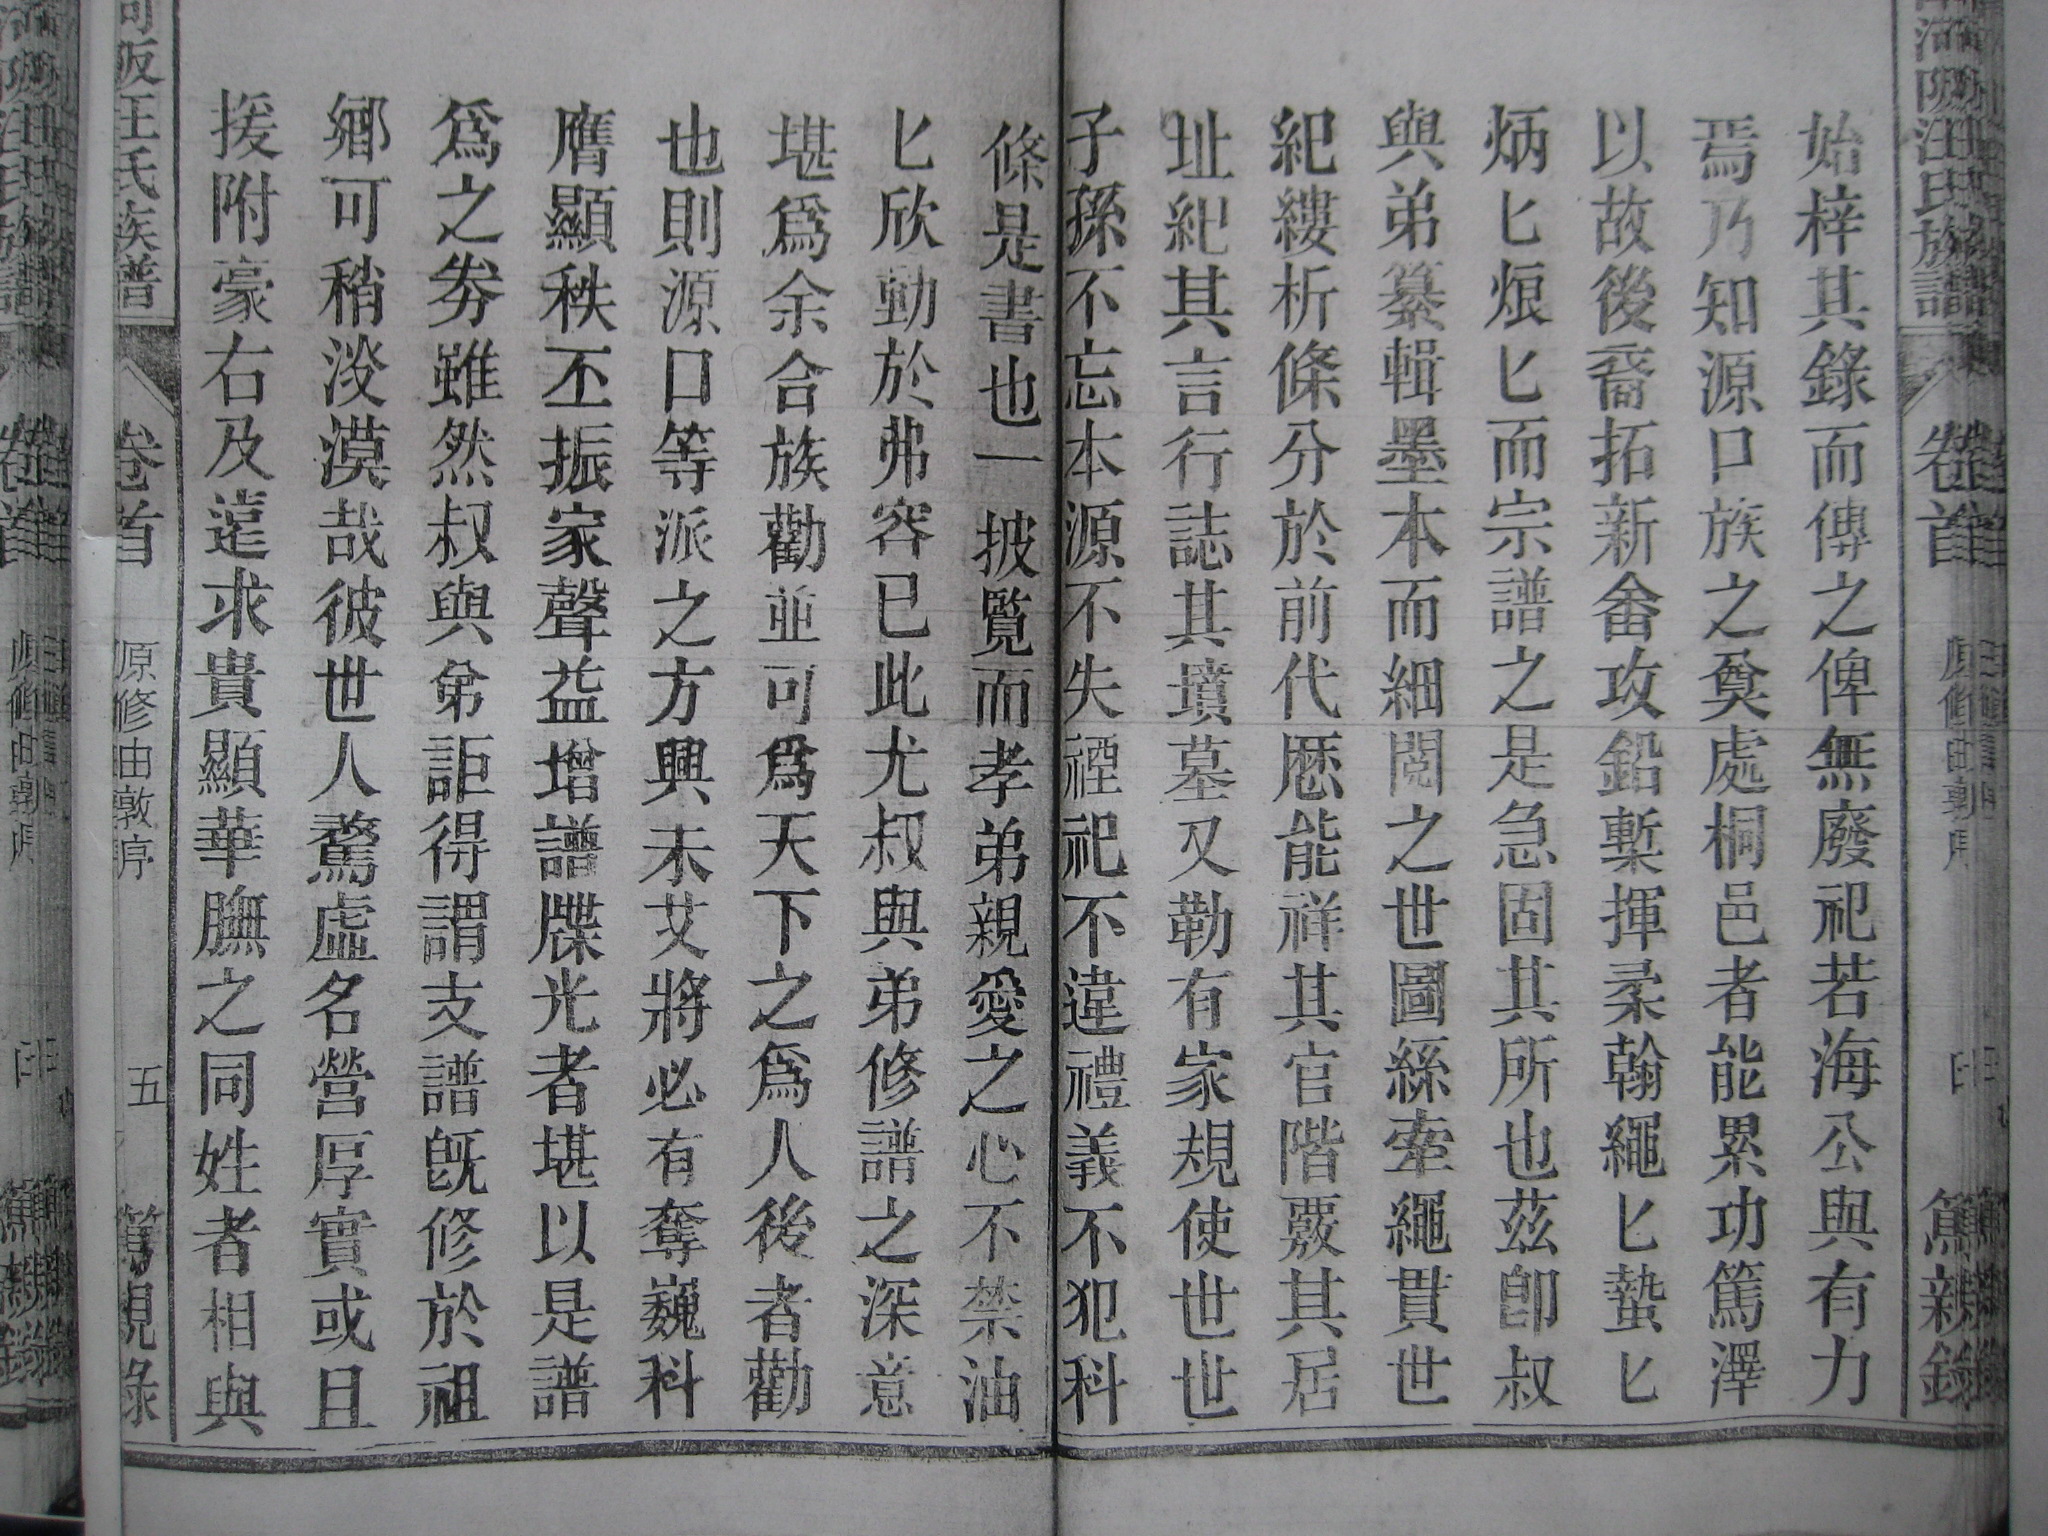 始梓其錄而傳之俾無廢祀若海公與有力
焉乃知源口族之奠處桐邑者能累功篤澤
以故後裔拓新畬攻鉛槧揮柔翰繩匕蟄匕
炳匕烺匕而宗譜之是急固其所也茲卽叔
與弟纂輯墨本而細閱之世圖絲牽繩貫世
紀縷析條分於前代愿能祥其官階覈其居
址紀其言行誌其墳墓又勒有家規使世世
子孫不忘本源不失禋祀不違禮義不犯科
條是書也一披覽而孝弟親愛之心不禁油
匕欣動於弗容已此尤叔與弟修譜之深意
堪爲余合族勸並可爲天下之爲人後者勸
也則源口等派之方興未艾將必有奪巍科
膺顯秩丕振家聲益增譜牒光者堪以是譜
爲之券雖然叔與弟詎得謂支譜旣修於祖
鄉可稍沒漠哉彼世人騖虛名營厚實或且
援附豪右及遠求貴顯華膴之同姓者相與
汪氏族譜
卷首
原修由敦序
五
篤親錄